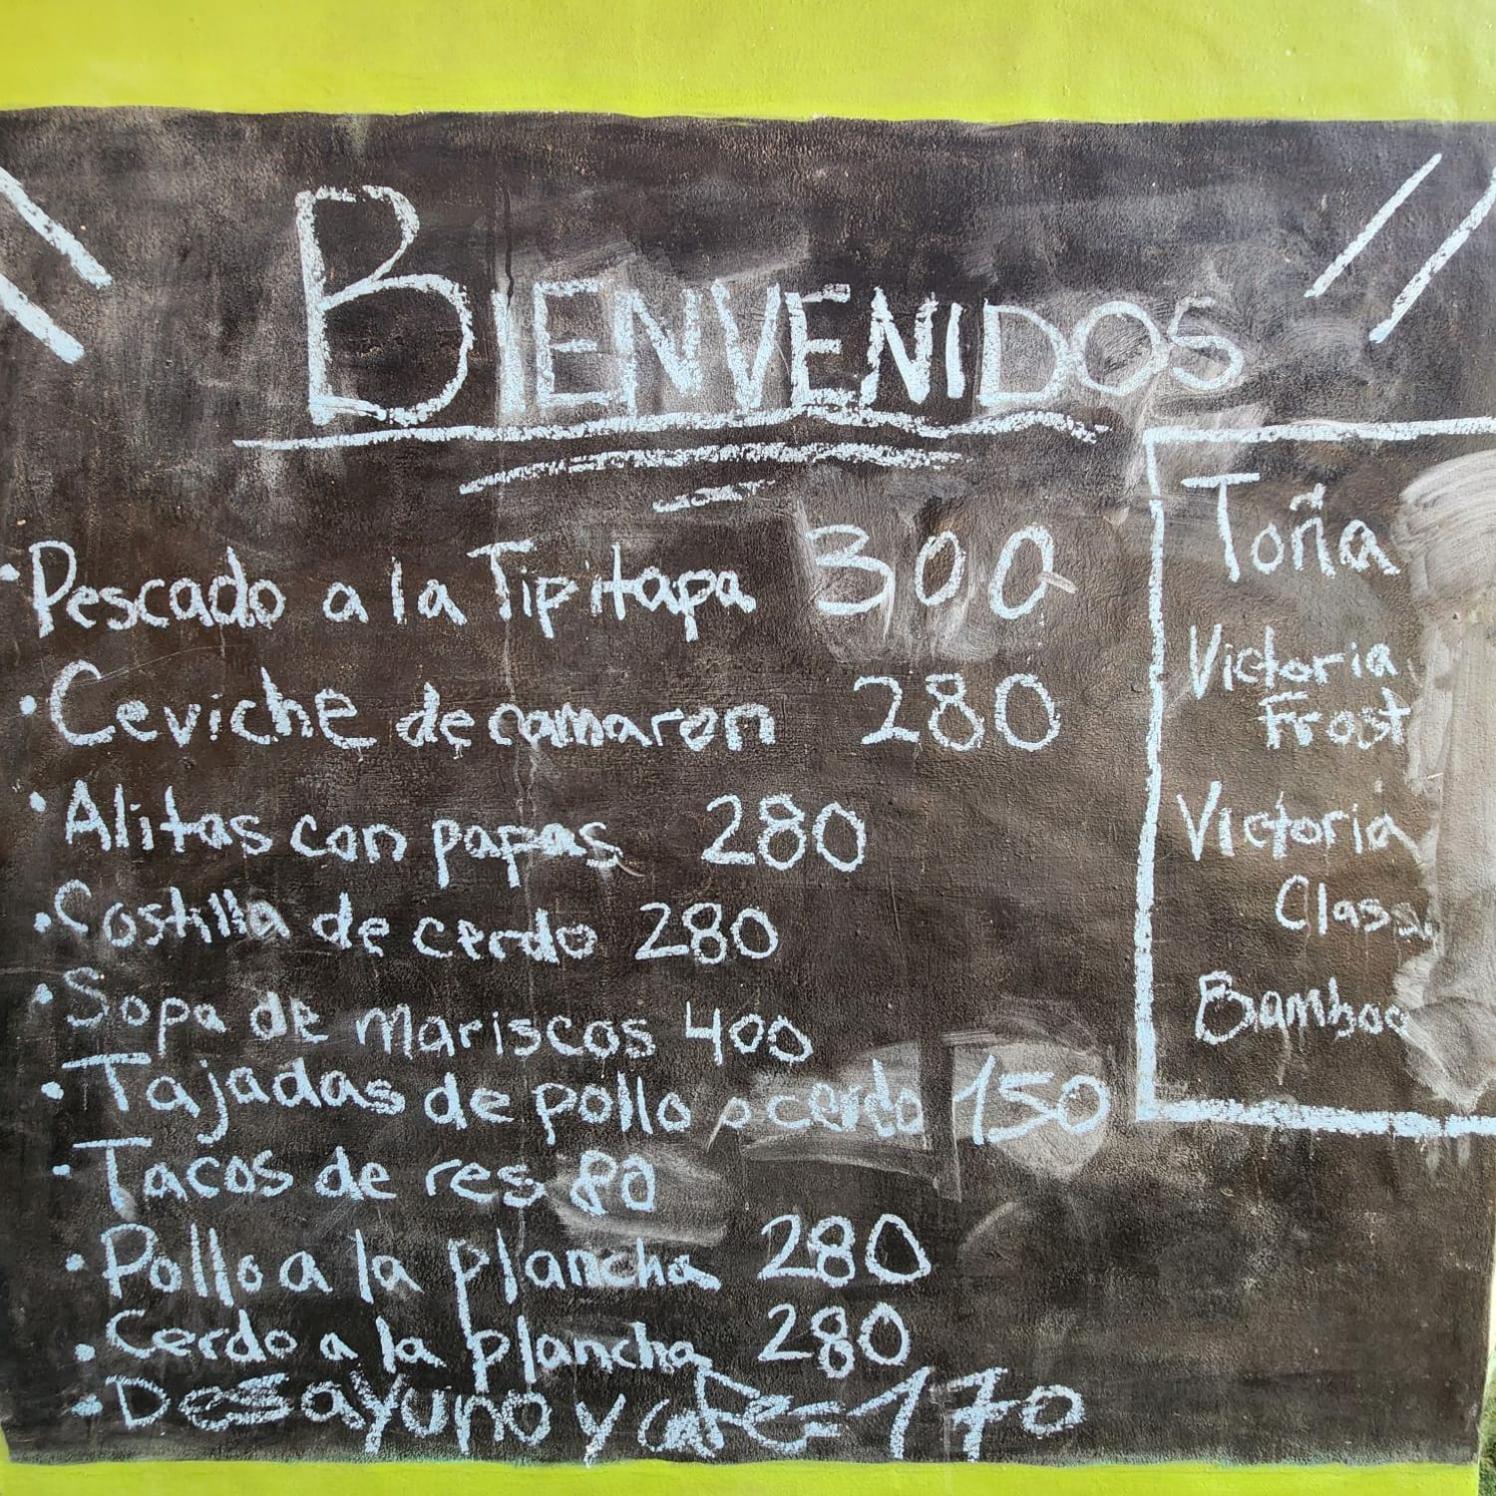 BIENVENIDOS
• Pescado a la Tipitapa 300
• Ceviche de camaron 280
• Alitas con papas 280
• Costilla de cerdo 280
• Sopa de mariscos 400
• Tajadas de pollo o cerdo 150
• Tacos de res 80
• Pollo a la plancha 280
• Cerdo a la plancha 280
• Desayuno y cafe = 170
Toña
Victoria
Frost
Victoria
Class
Bamboo